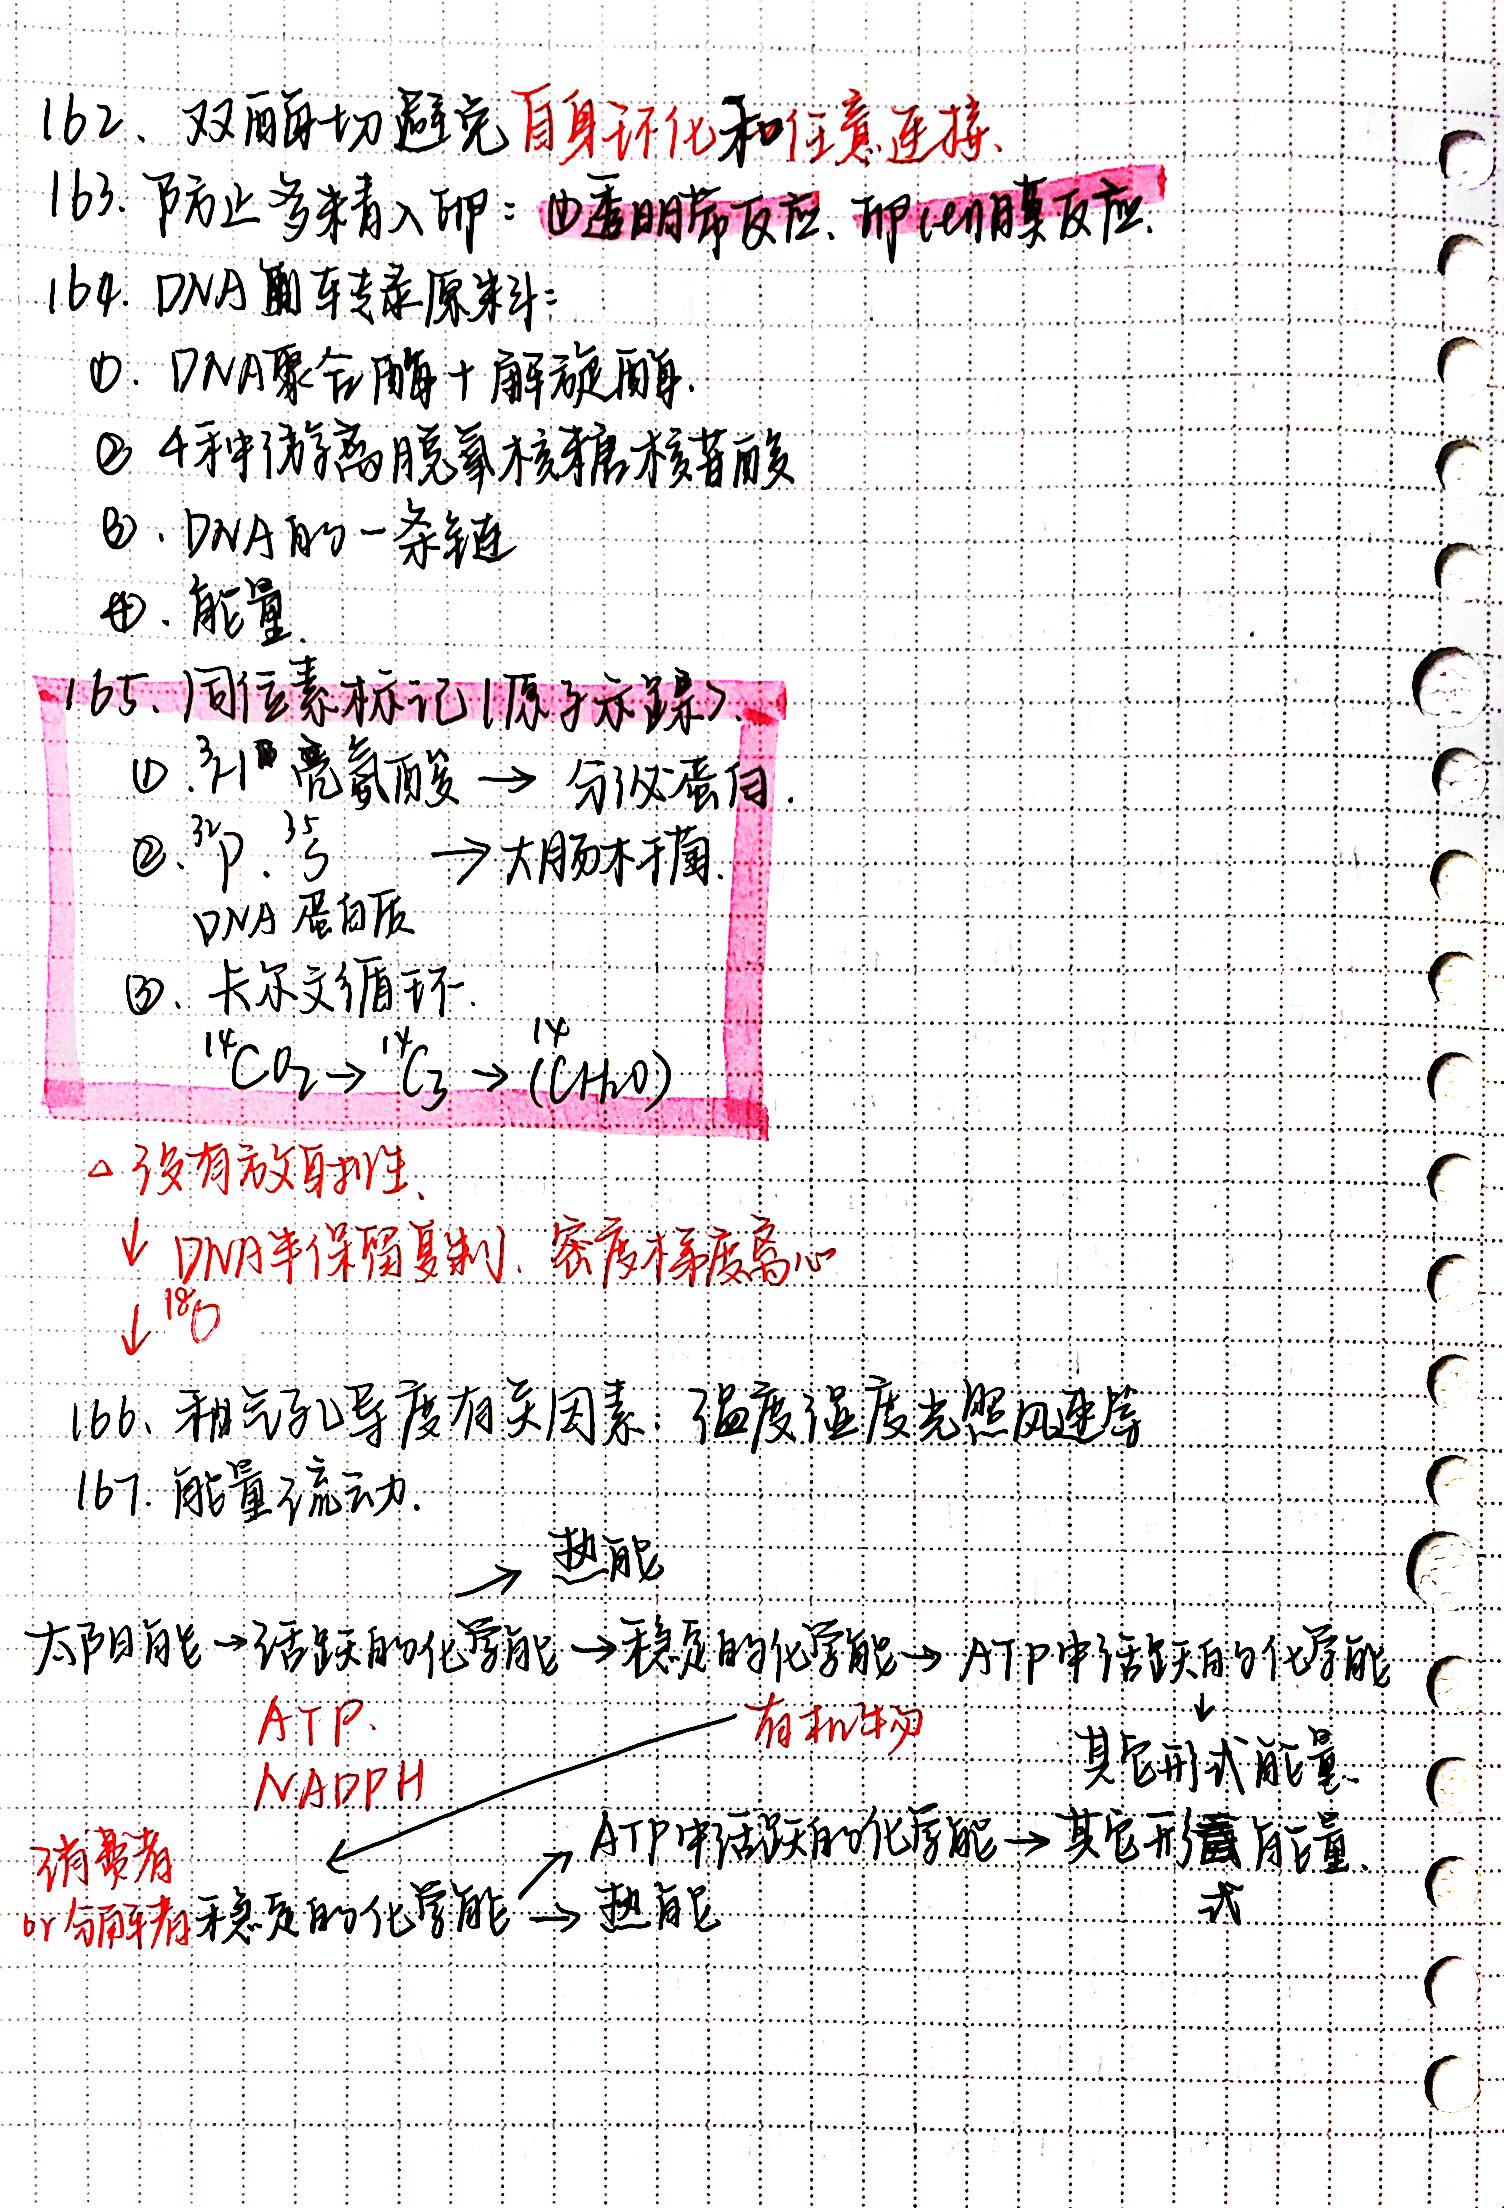 162、双酶切避免自身环化和任意连接、
163. 防止多精入卵：①透明带反应、卵cell膜反应.
164. DNA 转录原料：
①. DNA聚合酶+解旋酶.
② 4种游离脱氧核糖核苷酸
③. DNA的一条链
④. 能量.
165、同位素标记(原子示踪).
①. ³H 亮氨酸 → 分泌蛋白.
②. ³²P. ³⁵S → 大肠杆菌.
DNA 蛋白质
③. 卡尔文循环.
¹⁴CO₂ → ¹⁴C₃ → (¹⁴CH₂O)
△ 没有放射性、
↓ DNA半保留复制. 密度梯度离心
↓ ¹⁸O
166、和气孔导度有关因素：温度湿度光照风速等
167. 能量流动.
→ 热能
太阳能→活跃的化学能→稳定的化学能→ATP中活跃的化学能
ATP. 有机物 ↓
NADPH 其它形式能量.
消费者 ATP中活跃的化学能→其它形式能量.
or分解者 稳定的化学能 → 热能